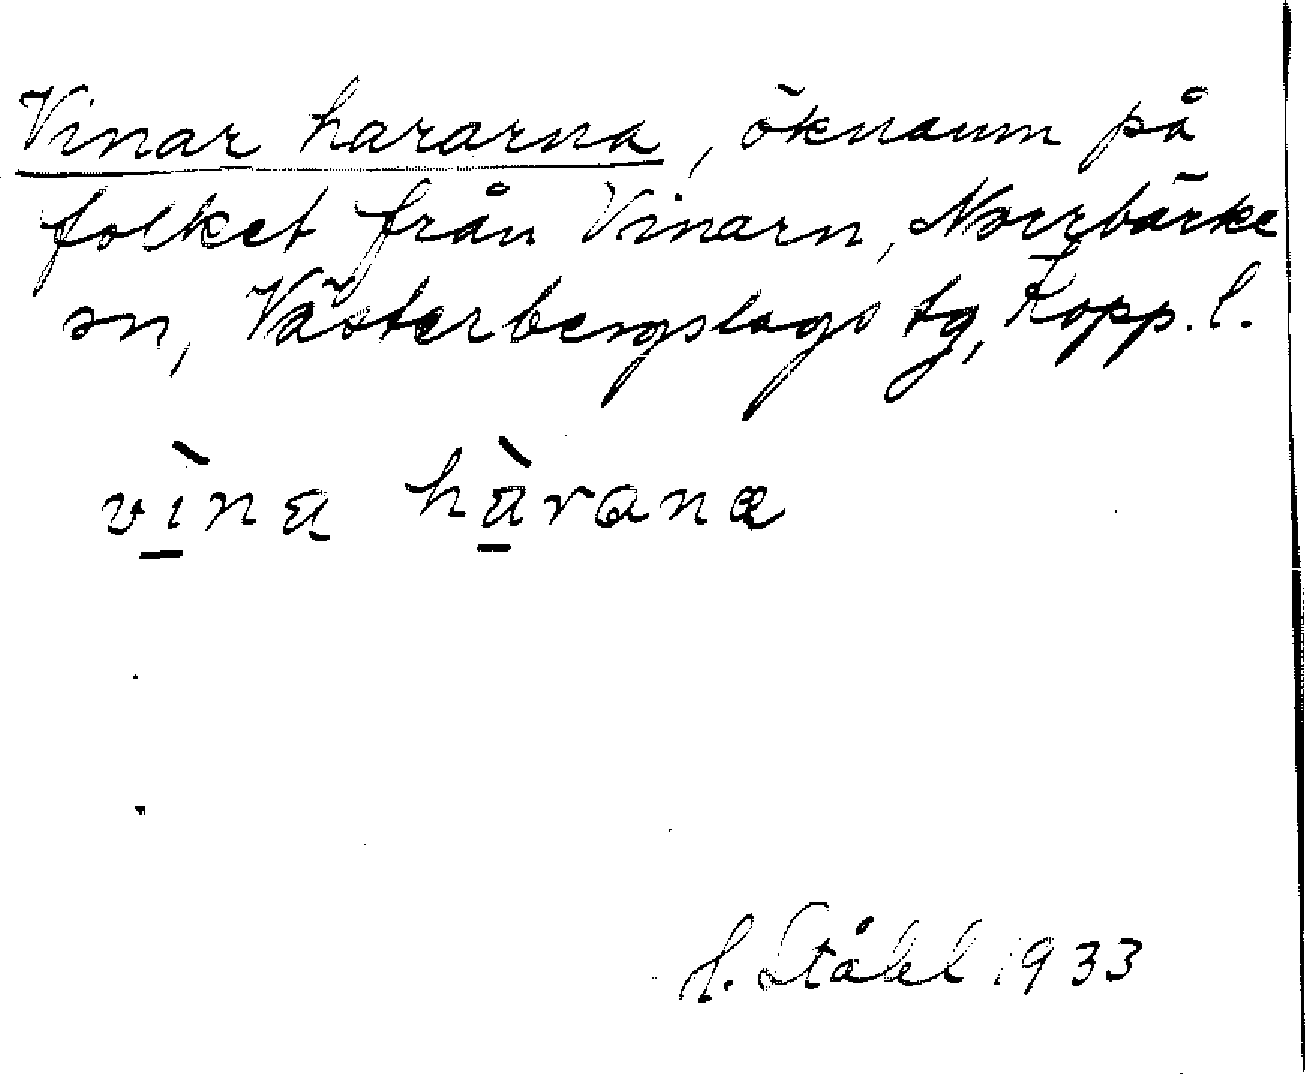 Vinar hararna, öknamn på
folket från Vinarn, Norrbärke
sn, Västerbergslags tg, Kopp. l.
vìna hàrana
H. Ståhl 1933